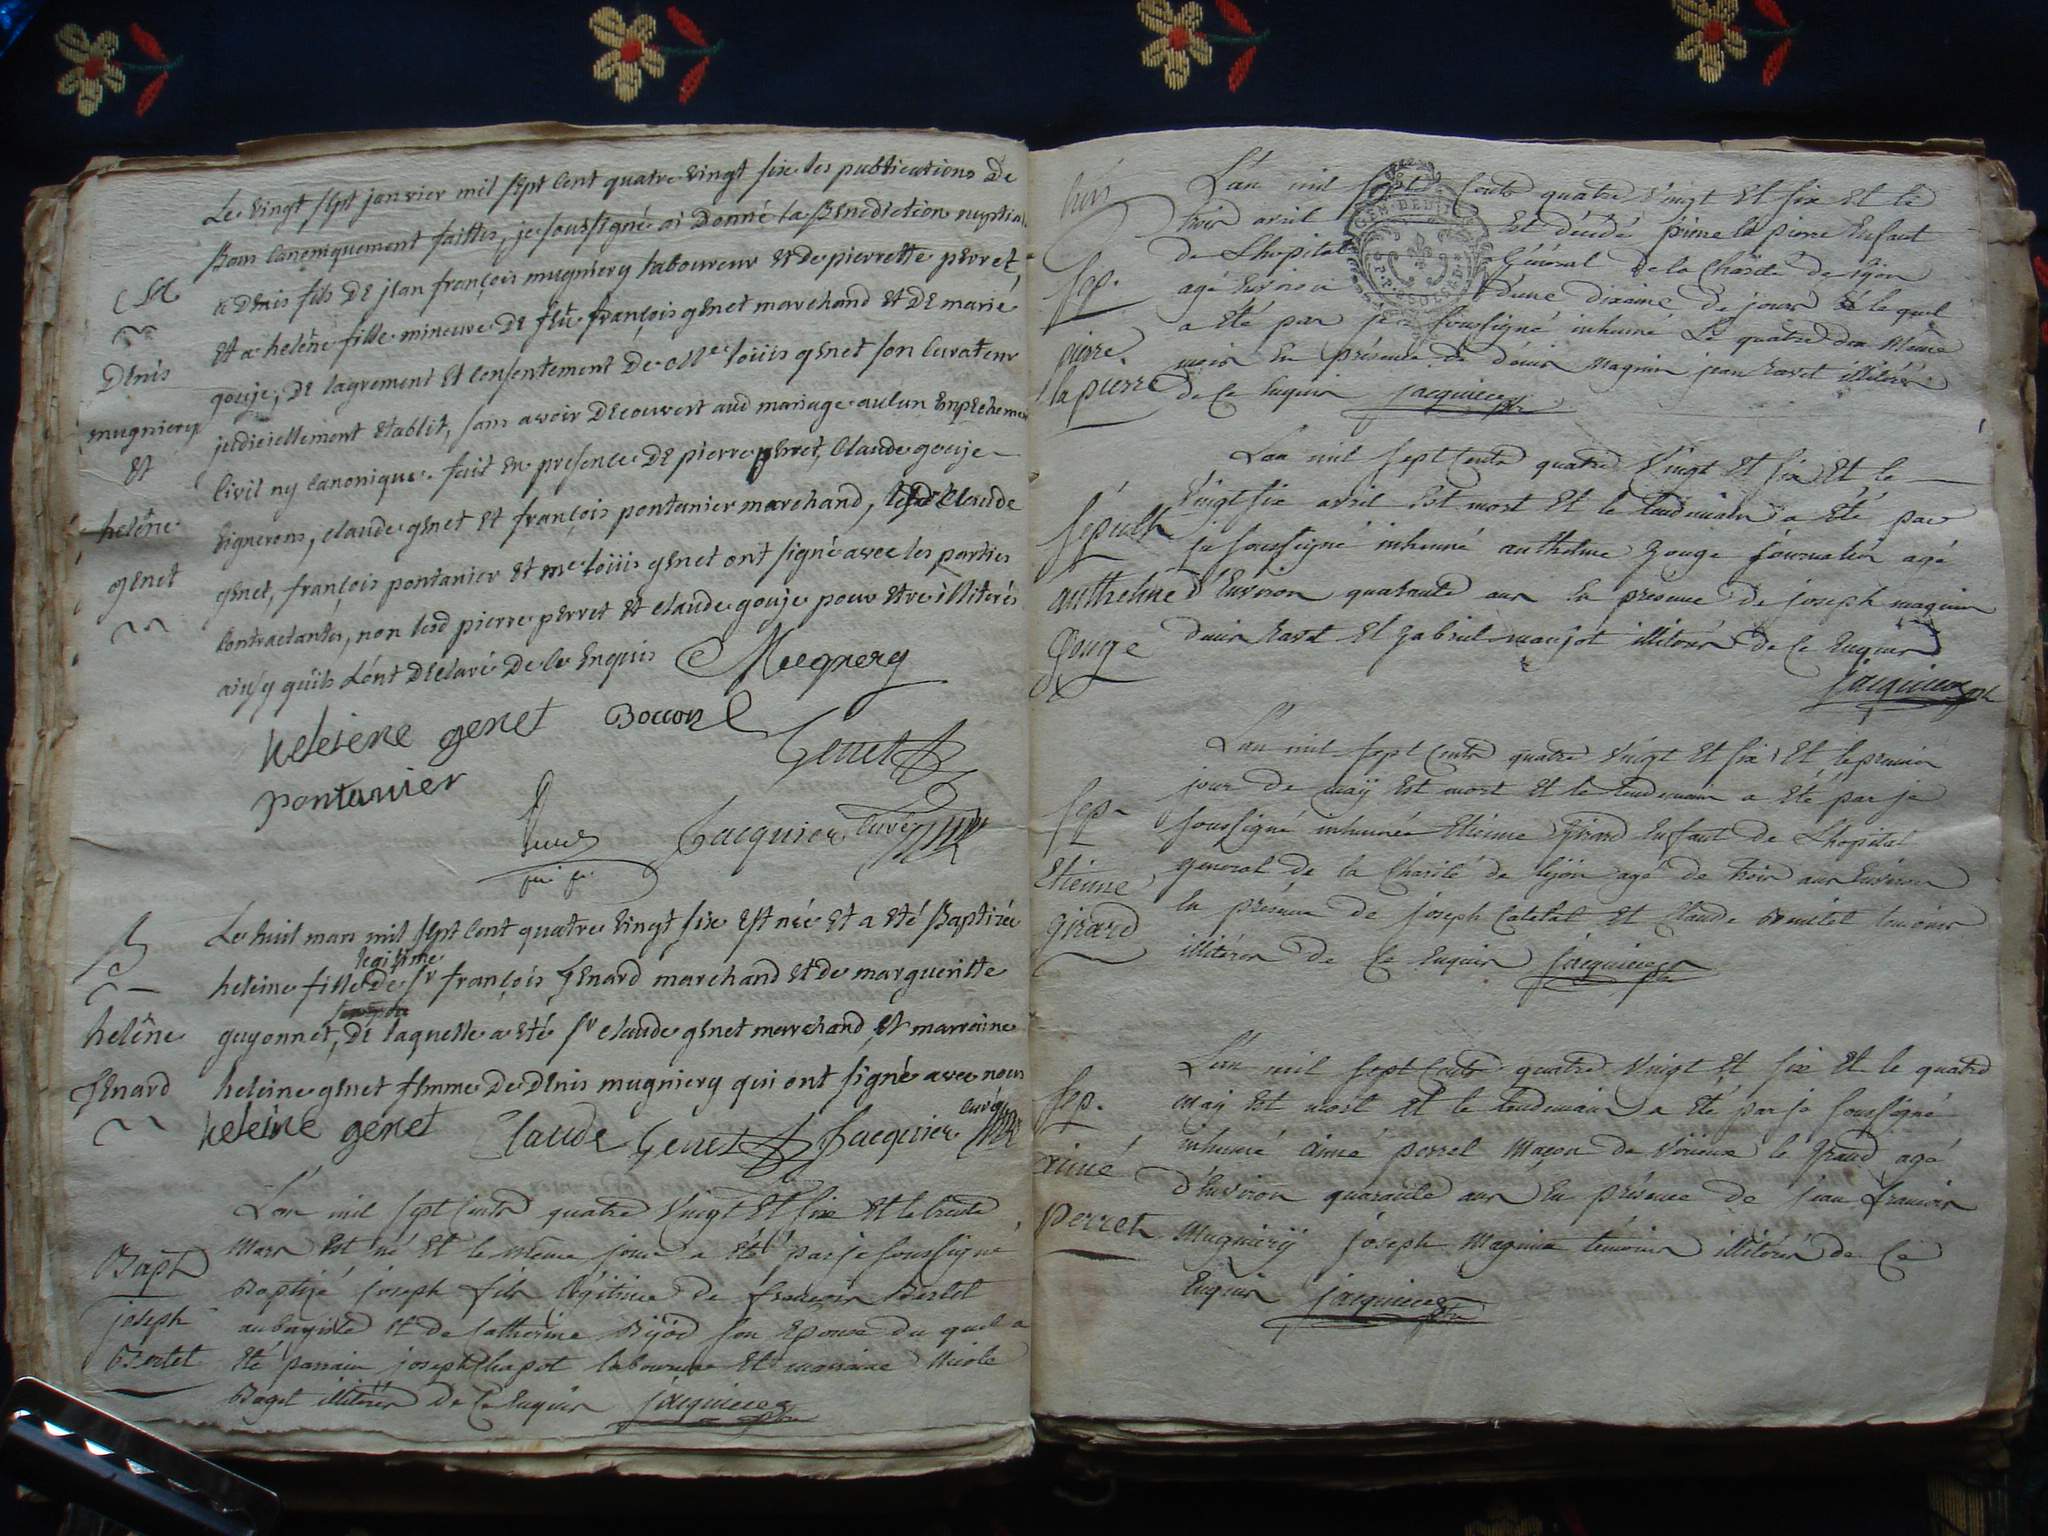 Le vingt sept janvier mil sept cent quatre vingt six les publications de
Bans canoniquement faittes, je soussigné ai donné la Benediction nuptiale
a denis fils de jean françois mugniery laboureur et de pierrette perret,
et a helène fille mineure de feu françois genet marchand et de marie
gouje; de lagrement et consentement de louis genet son curateur
judiciellement etablit, sans avoir découvert aud mariage aucun enpechement
civil ny canonique. fait en presence de pierre perret, claude gouje
vignerons, claude genet et françois pontanier marchand, claude
genet, françois pontanier et me louis genet ont signé avec les parties
contractantes, non lesd pierre perret et claude gouje pour etre illiterés
ainsy quils l'ont déclaré de ce enquis Mugnery
heleine genet Boccon
Genet
pontanier
Jacquier curé
Denis
mugniery
et
helène
genet
Le huit mars mil sept cent quatre vingt six est née et a été Baptizée
legitime
heleine fille de sr françois Genard marchand et de marguerite
guyonnet, de laquelle a été sr claude genet marchand, et marraine
heleine genet femme de denis mugniery qui ont signé avec nous
heleine genet Claude Genet Jacquier curé
B
helène
Genard
L'an mil sept cents quatre vingt et six et le trente
mars est né et le même jour a été par je soussigné
Baptizé joseph fils légitime de françois Bertet
aubergiste et de catherine son epouse du quel a
été parrain joseph chapot laboureur et marraine Nicole
Baget illitérés de ce enquis jacquier
Bapt
joseph
Bertet
L'an mil sept cents quatre vingt et six et le
trois avril est décédé pierre la pierre Enfant
de L'hopital Général de la Charité de Lyon
GEN. DE
agé Environ d'une dixaine de jours le quel
a été par je soussigné inhumé Le quatre du Meme
mois En présence de denis Magnin jean Ravet illitérés
de ce Enquis jacquier
Sep.
pierre
la pierre
L'an mil sept Cents quatre Vingt et six et le
Vingt six avril Est mort et le lendemain a été par
je soussigné inhumé anthelme gouge journalier agé
d'Environ quarante ans En présence de joseph magnin
denis Ravet et gabriel maujot illitérés de Ce Enquis
jacquier
Sepult
anthelme
Gouge
L'an mil sept Cents quatre Vingt et six et le premier
jour de may Est mort et le lendemain a été par je
soussigné inhumée Etienne Girard Enfant de L'hopital
general de la Charité de Lyon agé de trois ans Environ
En présence de joseph Catelat et Claude temoins
illitérés de Ce Enquis jacquier
Sep
Etienne
girard
L'an mil sept Cents quatre Vingt et six et le quatre
may Est mort et le lendemain a été par je soussigné
inhumé aimé perret Maçon de Virieux le Grand agé
d'Environ quarante ans En présence de jean françois
Mugniery joseph Magnin témoins illitérés de Ce
Enquis jacquier
Sep.
aimé
perret